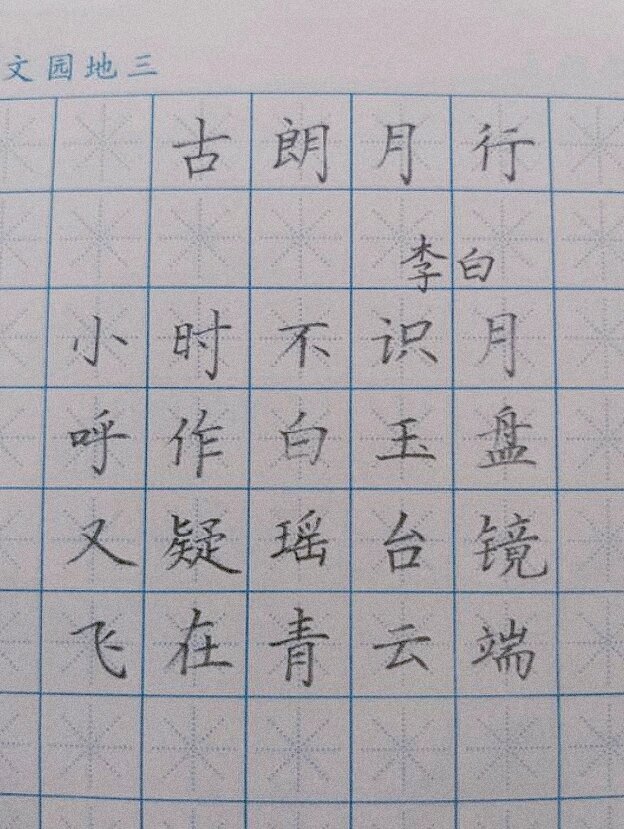 文园地三
古朗月行
李白
小时不识月
呼作白玉盘
又疑瑶台镜
飞在青云端